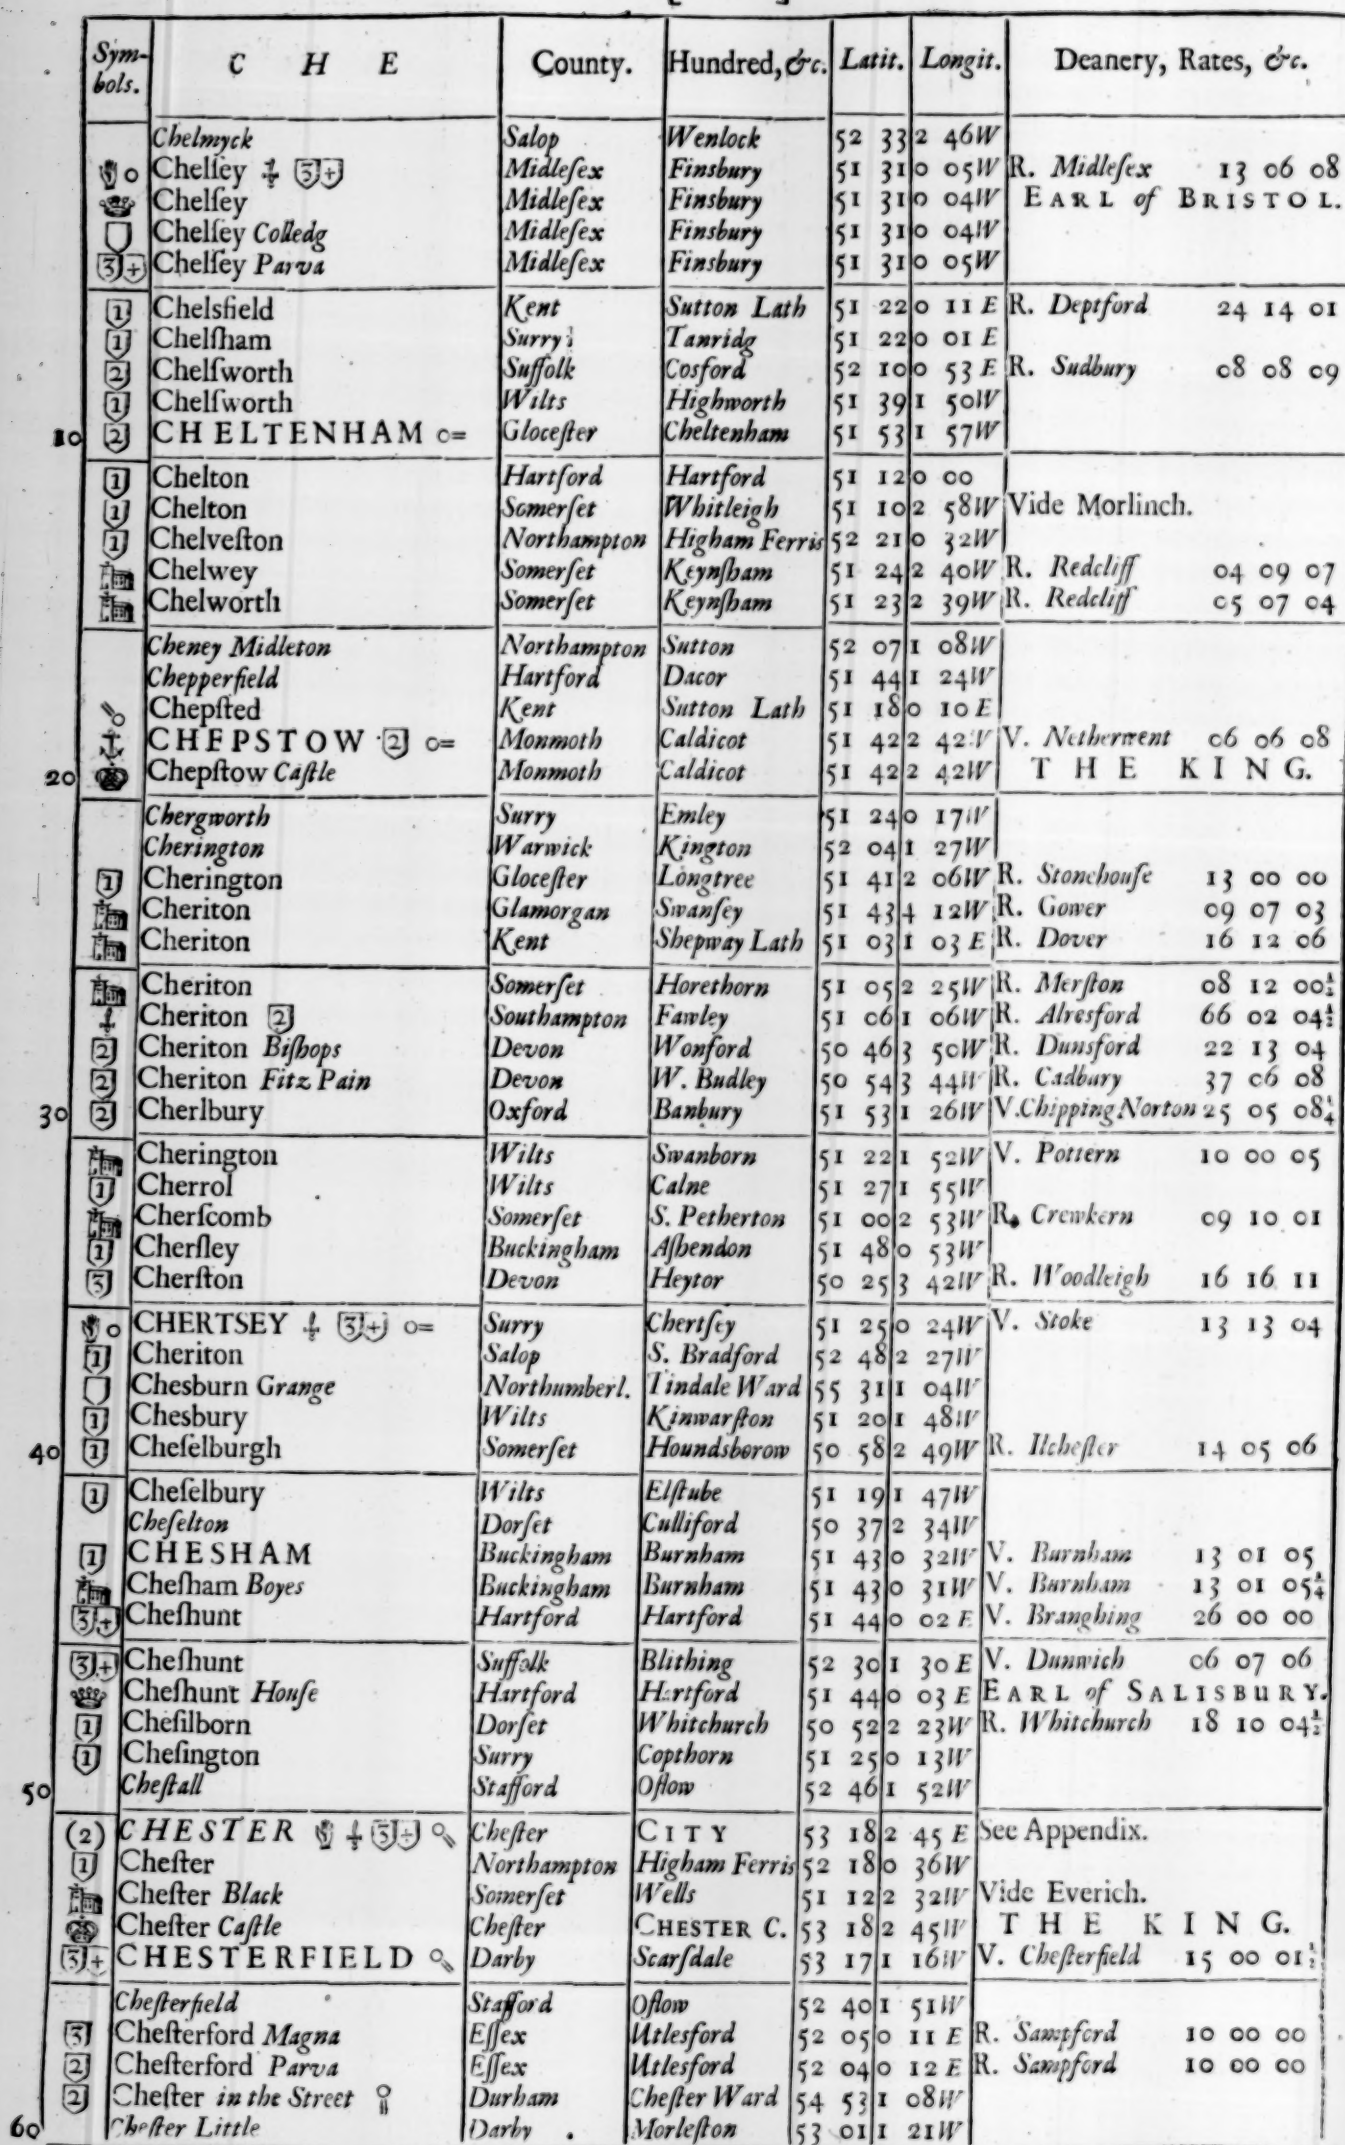 Symbols. C H E County. Hundred, &c. Latit. Longit. Deanery, Rates, &c.
Chelmyck Salop Wenlock 52 33 2 46W
Chelſey 3 + Midleſex Finsbury 51 31 0 05W R. Midleſex 13 06 08
Chelſey Midleſex Finsbury 51 31 0 04W EARL of BRISTOL.
Chelſey Colledg Midleſex Finsbury 51 31 0 04W
3 + Chelſey Parva Midleſex Finsbury 51 31 0 05W
1 Chelsfield Kent Sutton Lath 51 22 0 11 E R. Deptford 24 14 01
1 Chelſham Surry Tanridg 51 22 0 01 E
2 Chelſworth Suffolk Cosford 52 10 0 53 E R. Sudbury 08 08 09
1 Chelſworth Wilts Highworth 51 39 1 50W
10 2 CHELTENHAM Gloceſter Cheltenham 51 53 1 57W
1 Chelton Hartford Hartford 51 12 0 00
1 Chelton Somerſet Whitleigh 51 10 2 58W Vide Morlinch.
1 Chelveſton Northampton Higham Ferris 52 21 0 32W
Chelwey Somerſet Keynſham 51 24 2 40W R. Redcliff 04 09 07
Chelworth Somerſet Keynſham 51 23 2 39W R. Redcliff 05 07 04
Cheney Midleton Northampton Sutton 52 07 1 08W
Chepperfield Hartford Dacor 51 44 1 24W
Chepſted Kent Sutton Lath 51 18 0 10 E
CHEPSTOW 2 Monmoth Caldicot 51 42 2 42W V. Netherwent 06 06 08
20 Chepſtow Caſtle Monmoth Caldicot 51 42 2 42W THE KING.
Chergworth Surry Emley 51 24 0 17W
Cherington Warwick Kington 52 04 1 27W
1 Cherington Gloceſter Longtree 51 41 2 06W R. Stonehouſe 13 00 00
Cheriton Glamorgan Swanſey 51 43 4 12W R. Gower 09 07 03
Cheriton Kent Shepway Lath 51 03 1 03 E R. Dover 16 12 06
Cheriton Somerſet Horethorn 51 05 2 25W R. Merſton 08 12 00½
Cheriton 2 Southampton Fawley 51 06 1 06W R. Alresford 66 02 04½
2 Cheriton Biſhops Devon Wonford 50 46 3 50W R. Dunsford 22 13 04
2 Cheriton Fitz Pain Devon W. Budley 50 54 3 44W R. Cadbury 37 06 08
30 2 Cherlbury Oxford Banbury 51 53 1 26W V. Chipping Norton 25 05 08¼
Cherington Wilts Swanborn 51 22 1 52W V. Pottern 10 00 05
1 Cherrol Wilts Calne 51 27 1 55W
Cherſcomb Somerſet S. Petherton 51 00 2 53W R. Crewkern 09 10 01
1 Cherſley Buckingham Aſhendon 51 48 0 53W
3 Cherſton Devon Heytor 50 25 3 42W R. Woodleigh 16 16 11
CHERTSEY 3 + Surry Chertſey 51 25 0 24W V. Stoke 13 13 04
1 Cheriton Salop S. Bradford 52 48 2 27W
Chesburn Grange Northumberl. Tindale Ward 55 31 1 04W
1 Chesbury Wilts Kinwarſton 51 20 1 48W
40 1 Cheſelburgh Somerſet Houndsborow 50 58 2 49W R. Ilcheſter 14 05 06
1 Cheſelbury Wilts Elſtube 51 19 1 47W
Cheſelton Dorſet Culliford 50 37 2 34W
1 CHESHAM Buckingham Burnham 51 43 0 32W V. Burnham 13 01 05
Cheſham Boyes Buckingham Burnham 51 43 0 31W V. Burnham 13 01 05¼
3 + Cheſhunt Hartford Hartford 51 44 0 02 E V. Branghing 26 00 00
3 + Cheſhunt Suffolk Blithing 52 30 1 30 E V. Dunwich 06 07 06
Cheſhunt Houſe Hartford Hartford 51 44 0 03 E EARL of SALISBURY.
1 Cheſilborn Dorſet Whitchurch 50 52 2 23W R. Whitchurch 18 10 04½
1 Cheſington Surry Copthorn 51 25 0 13W
50 Cheſtall Stafford Oflow 52 46 1 52W
(2) CHESTER 3 + Cheſter CITY 53 18 2 45 E See Appendix.
1 Cheſter Northampton Higham Ferris 52 18 0 36W
Cheſter Black Somerſet Wells 51 12 2 32W Vide Everich.
Cheſter Caſtle Cheſter CHESTER C. 53 18 2 45W THE KING.
3 + CHESTERFIELD Darby Scarſdale 53 17 1 16W V. Cheſterfield 15 00 01½
Cheſterfield Stafford Oflow 52 40 1 51W
3 Cheſterford Magna Eſſex Utlesford 52 05 0 11 E R. Sampford 10 00 00
2 Cheſterford Parva Eſſex Utlesford 52 04 0 12 E R. Sampford 10 00 00
2 Cheſter in the Street Durham Cheſter Ward 54 53 1 08W
60 Cheſter Little Darby Morleſton 53 01 1 21W